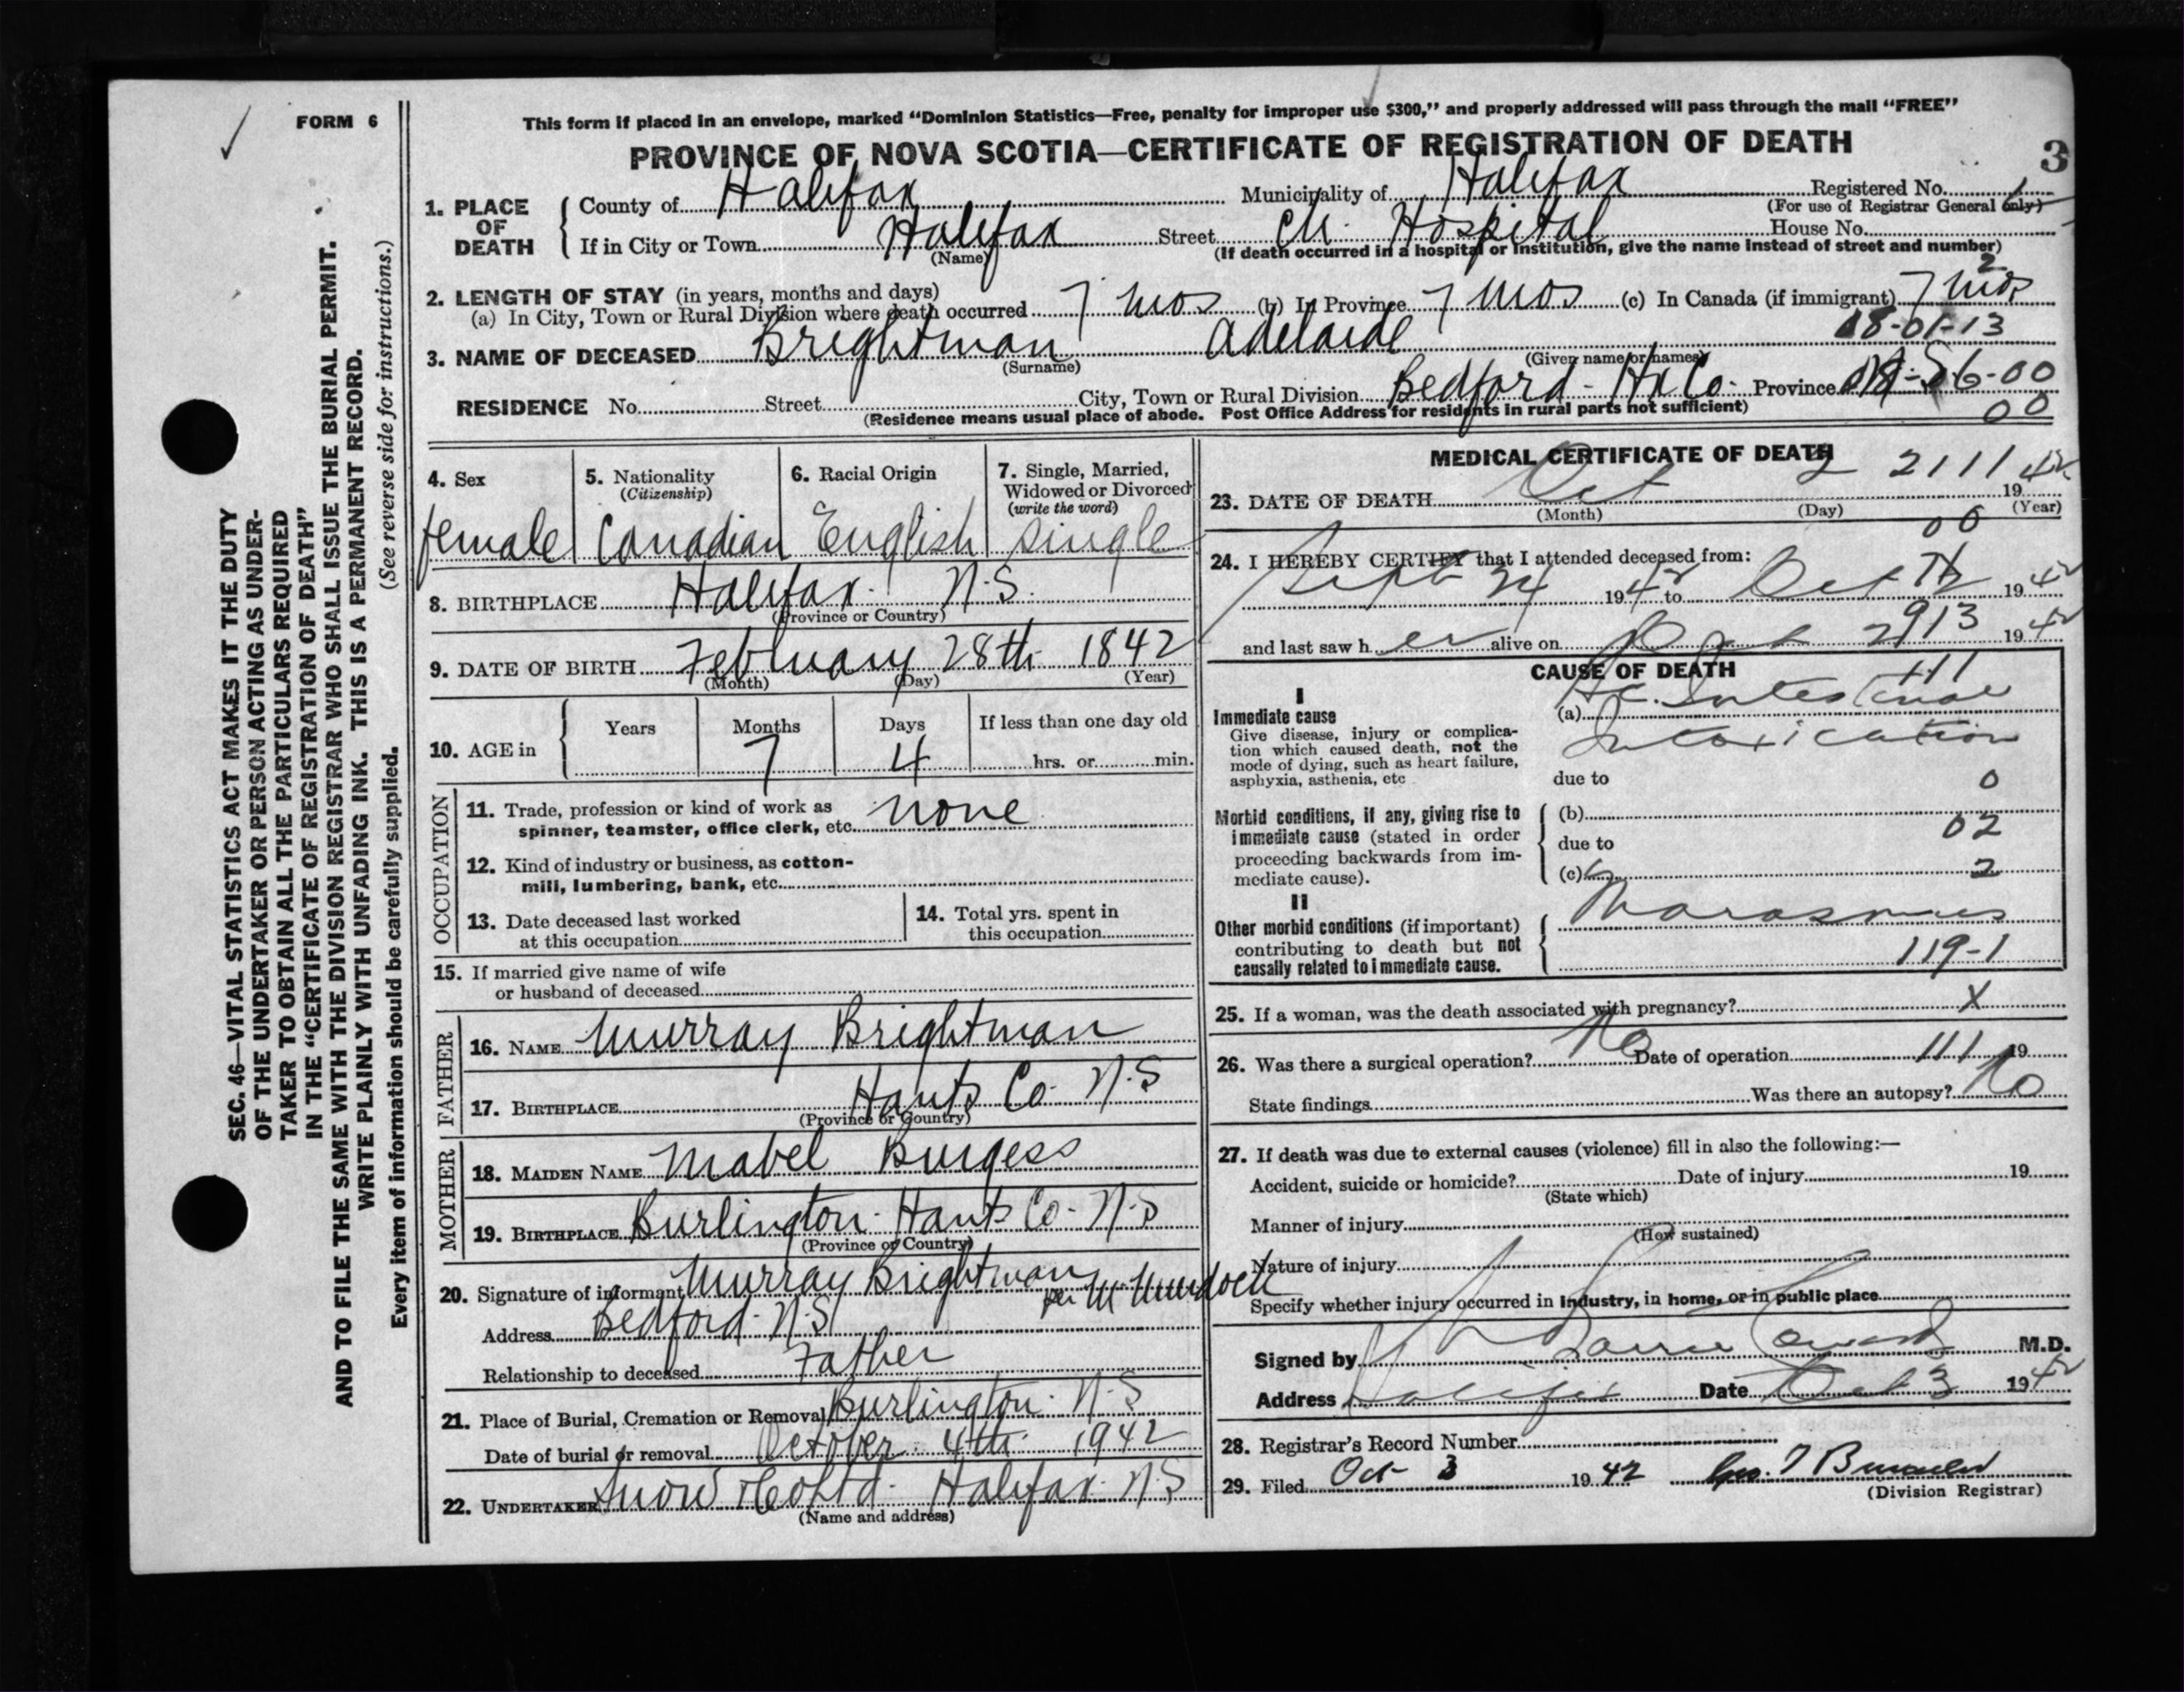 FORM 6
This form if placed in an envelope, marked "Dominion Statistics—Free, penalty for improper use $300," and properly addressed will pass through the mail "FREE"
PROVINCE OF NOVA SCOTIA—CERTIFICATE OF REGISTRATION OF DEATH
3
1. PLACE OF DEATH
County of Halifax Municipality of Halifax Registered No.
(For use of Registrar General only)
If in City or Town Halifax Street Ch. Hospital House No.
(Name) (If death occurred in a hospital or institution, give the name instead of street and number)
2
2. LENGTH OF STAY (in years, months and days)
(a) In City, Town or Rural Division where death occurred 7 mos (b) In Province 7 mos (c) In Canada (if immigrant) 7 mos
08-01-13
3. NAME OF DECEASED Brightman Adelaide
(Surname) (Given name or names)
RESIDENCE No. Street City, Town or Rural Division Bedford - Hx Co. Province N.S. 06-00
(Residence means usual place of abode. Post Office Address for residents in rural parts not sufficient)
00
SEC. 46—VITAL STATISTICS ACT MAKES IT THE DUTY
OF THE UNDERTAKER OR PERSON ACTING AS UNDER-
TAKER TO OBTAIN ALL THE PARTICULARS REQUIRED
IN THE "CERTIFICATE OF REGISTRATION OF DEATH"
AND TO FILE THE SAME WITH THE DIVISION REGISTRAR WHO SHALL ISSUE THE BURIAL PERMIT.
WRITE PLAINLY WITH UNFADING INK. THIS IS A PERMANENT RECORD.
Every item of information should be carefully supplied. (See reverse side for instructions.)
4. Sex
female
5. Nationality
(Citizenship)
Canadian
6. Racial Origin
English
7. Single, Married,
Widowed or Divorced
(write the word)
single
8. BIRTHPLACE Halifax. N.S.
(Province or Country)
9. DATE OF BIRTH February 28th 1842
(Month) (Day) (Year)
10. AGE in
Years Months Days If less than one day old
7 4 hrs. or min.
OCCUPATION
11. Trade, profession or kind of work as
spinner, teamster, office clerk, etc. none
12. Kind of industry or business, as cotton-
mill, lumbering, bank, etc.
13. Date deceased last worked
at this occupation
14. Total yrs. spent in
this occupation
15. If married give name of wife
or husband of deceased
FATHER
16. NAME Murray Brightman
17. BIRTHPLACE Hants Co. N.S
(Province or Country)
MOTHER
18. MAIDEN NAME Mabel Burgess
19. BIRTHPLACE Burlington. Hants Co. N.S
(Province or Country)
20. Signature of informant Murray Brightman
per M Murdock
Address Bedford. N.S.
Relationship to deceased Father
21. Place of Burial, Cremation or Removal Burlington. N.S
Date of burial or removal October 4th 1942
22. UNDERTAKER Snow & Co Ltd. Halifax. N.S
(Name and address)
MEDICAL CERTIFICATE OF DEATH
2111
23. DATE OF DEATH Oct 2 1942
(Month) (Day) (Year)
00
24. I HEREBY CERTIFY that I attended deceased from:
Sept 24 1942 to Oct 2 1942
and last saw her alive on Oct 2 1942
913
CAUSE OF DEATH
111
I
Immediate cause
Give disease, injury or complica-
tion which caused death, not the
mode of dying, such as heart failure,
asphyxia, asthenia, etc
(a) Ac. Intestinal
Intoxication
due to
0
Morbid conditions, if any, giving rise to
immediate cause (stated in order
proceeding backwards from im-
mediate cause).
(b)
02
due to
(c)
2
II
Other morbid conditions (if important)
contributing to death but not
causally related to immediate cause.
Marasmus
119-1
25. If a woman, was the death associated with pregnancy? X
26. Was there a surgical operation? No Date of operation 111 19
State findings Was there an autopsy? No
27. If death was due to external causes (violence) fill in also the following:—
Accident, suicide or homicide? Date of injury 19
(State which)
Manner of injury
(How sustained)
Nature of injury
Specify whether injury occurred in Industry, in home, or in public place
Signed by M.D.
Address Halifax Date Oct 3 1942
28. Registrar's Record Number
29. Filed Oct 3 1942
(Division Registrar)